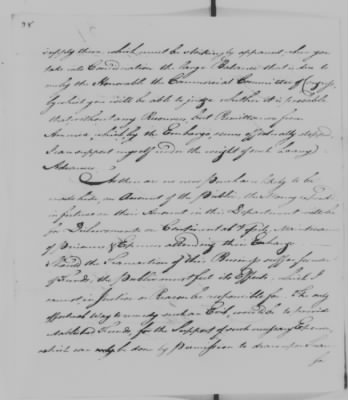 38
supply them which must be strikingly apparent when you
take into Consideration the large Balances that is due to
me by the Honorable the Commercial Committee of Congress,
by which you will be able to judge whether it is possible
that without any Resources, but Remittances from
America, which by the Embargo, seems effectually stopped
I can support myself under the weight of such heavy
Advances.
As there are no new Purchases likely to be
made here, on Account of the Public,
in future on their Account in this Department will be
for Disbursements on Continental Ships, Maintenance
of Prisoners & Expences attending their Exchange
Should the Transaction of this Business suffer for want
of Funds, the Public must feel its Effects, which I
cannot in Justice or Reason be responsible for. The only
effectual Way to remedy such an Evil, would be to provide
established Funds, for the Support of such necessary Expences,
which can only be done by Permission to draw upon
for